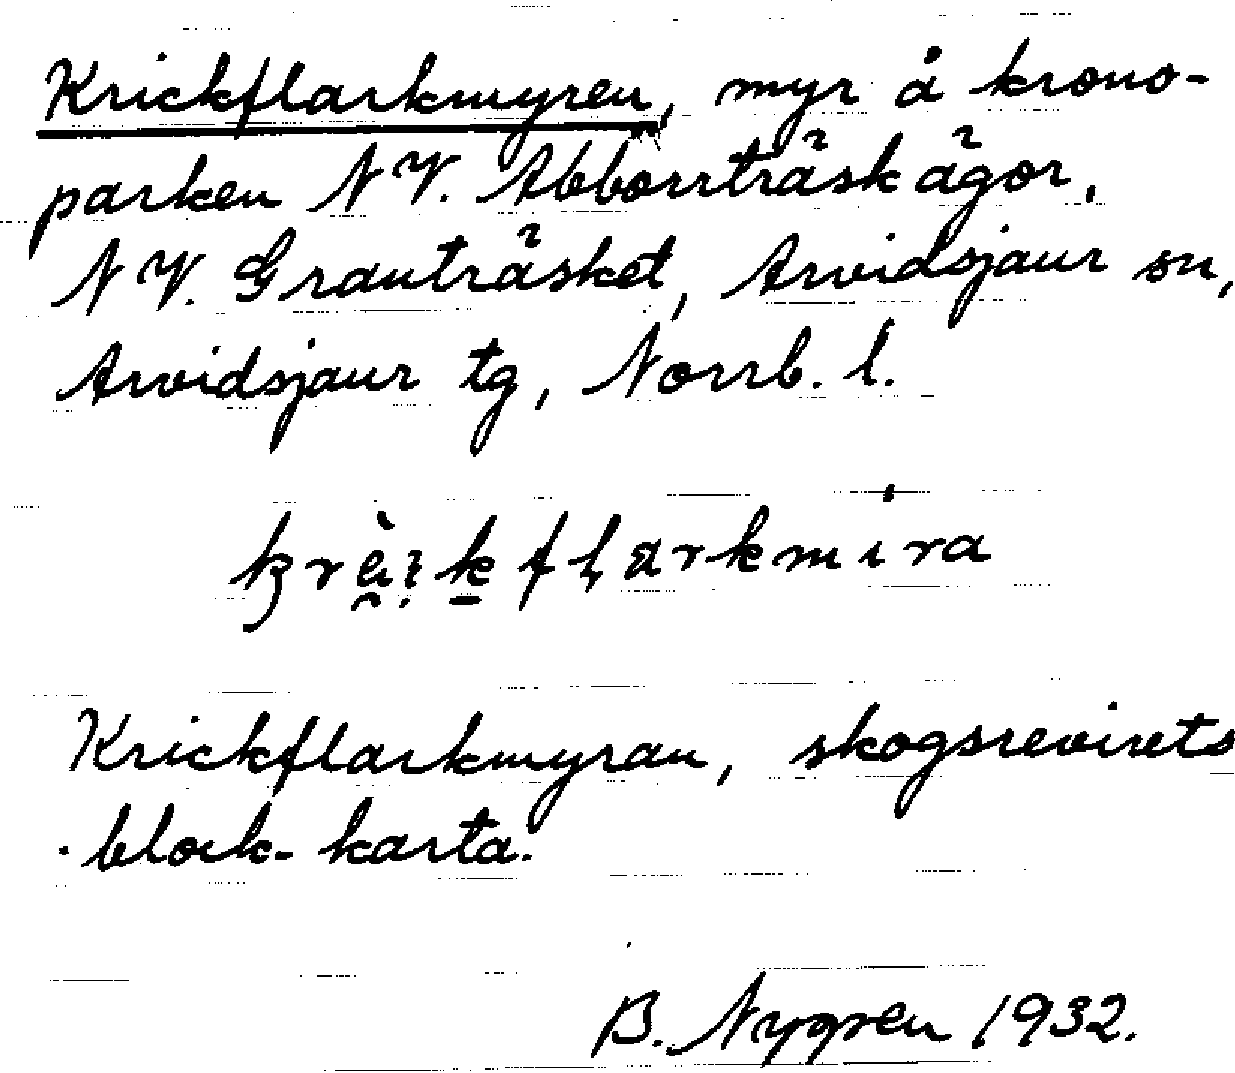 Krickflarkmyren, myr å krono-
parken NV. Abborrträskägor,
NV. Granträsket, Arvidsjaur sn,
Arvidsjaur tg, Norrb. l.
Krickflarkmyran, skogsrevirets
block-karta.
B. Nygren 1932.